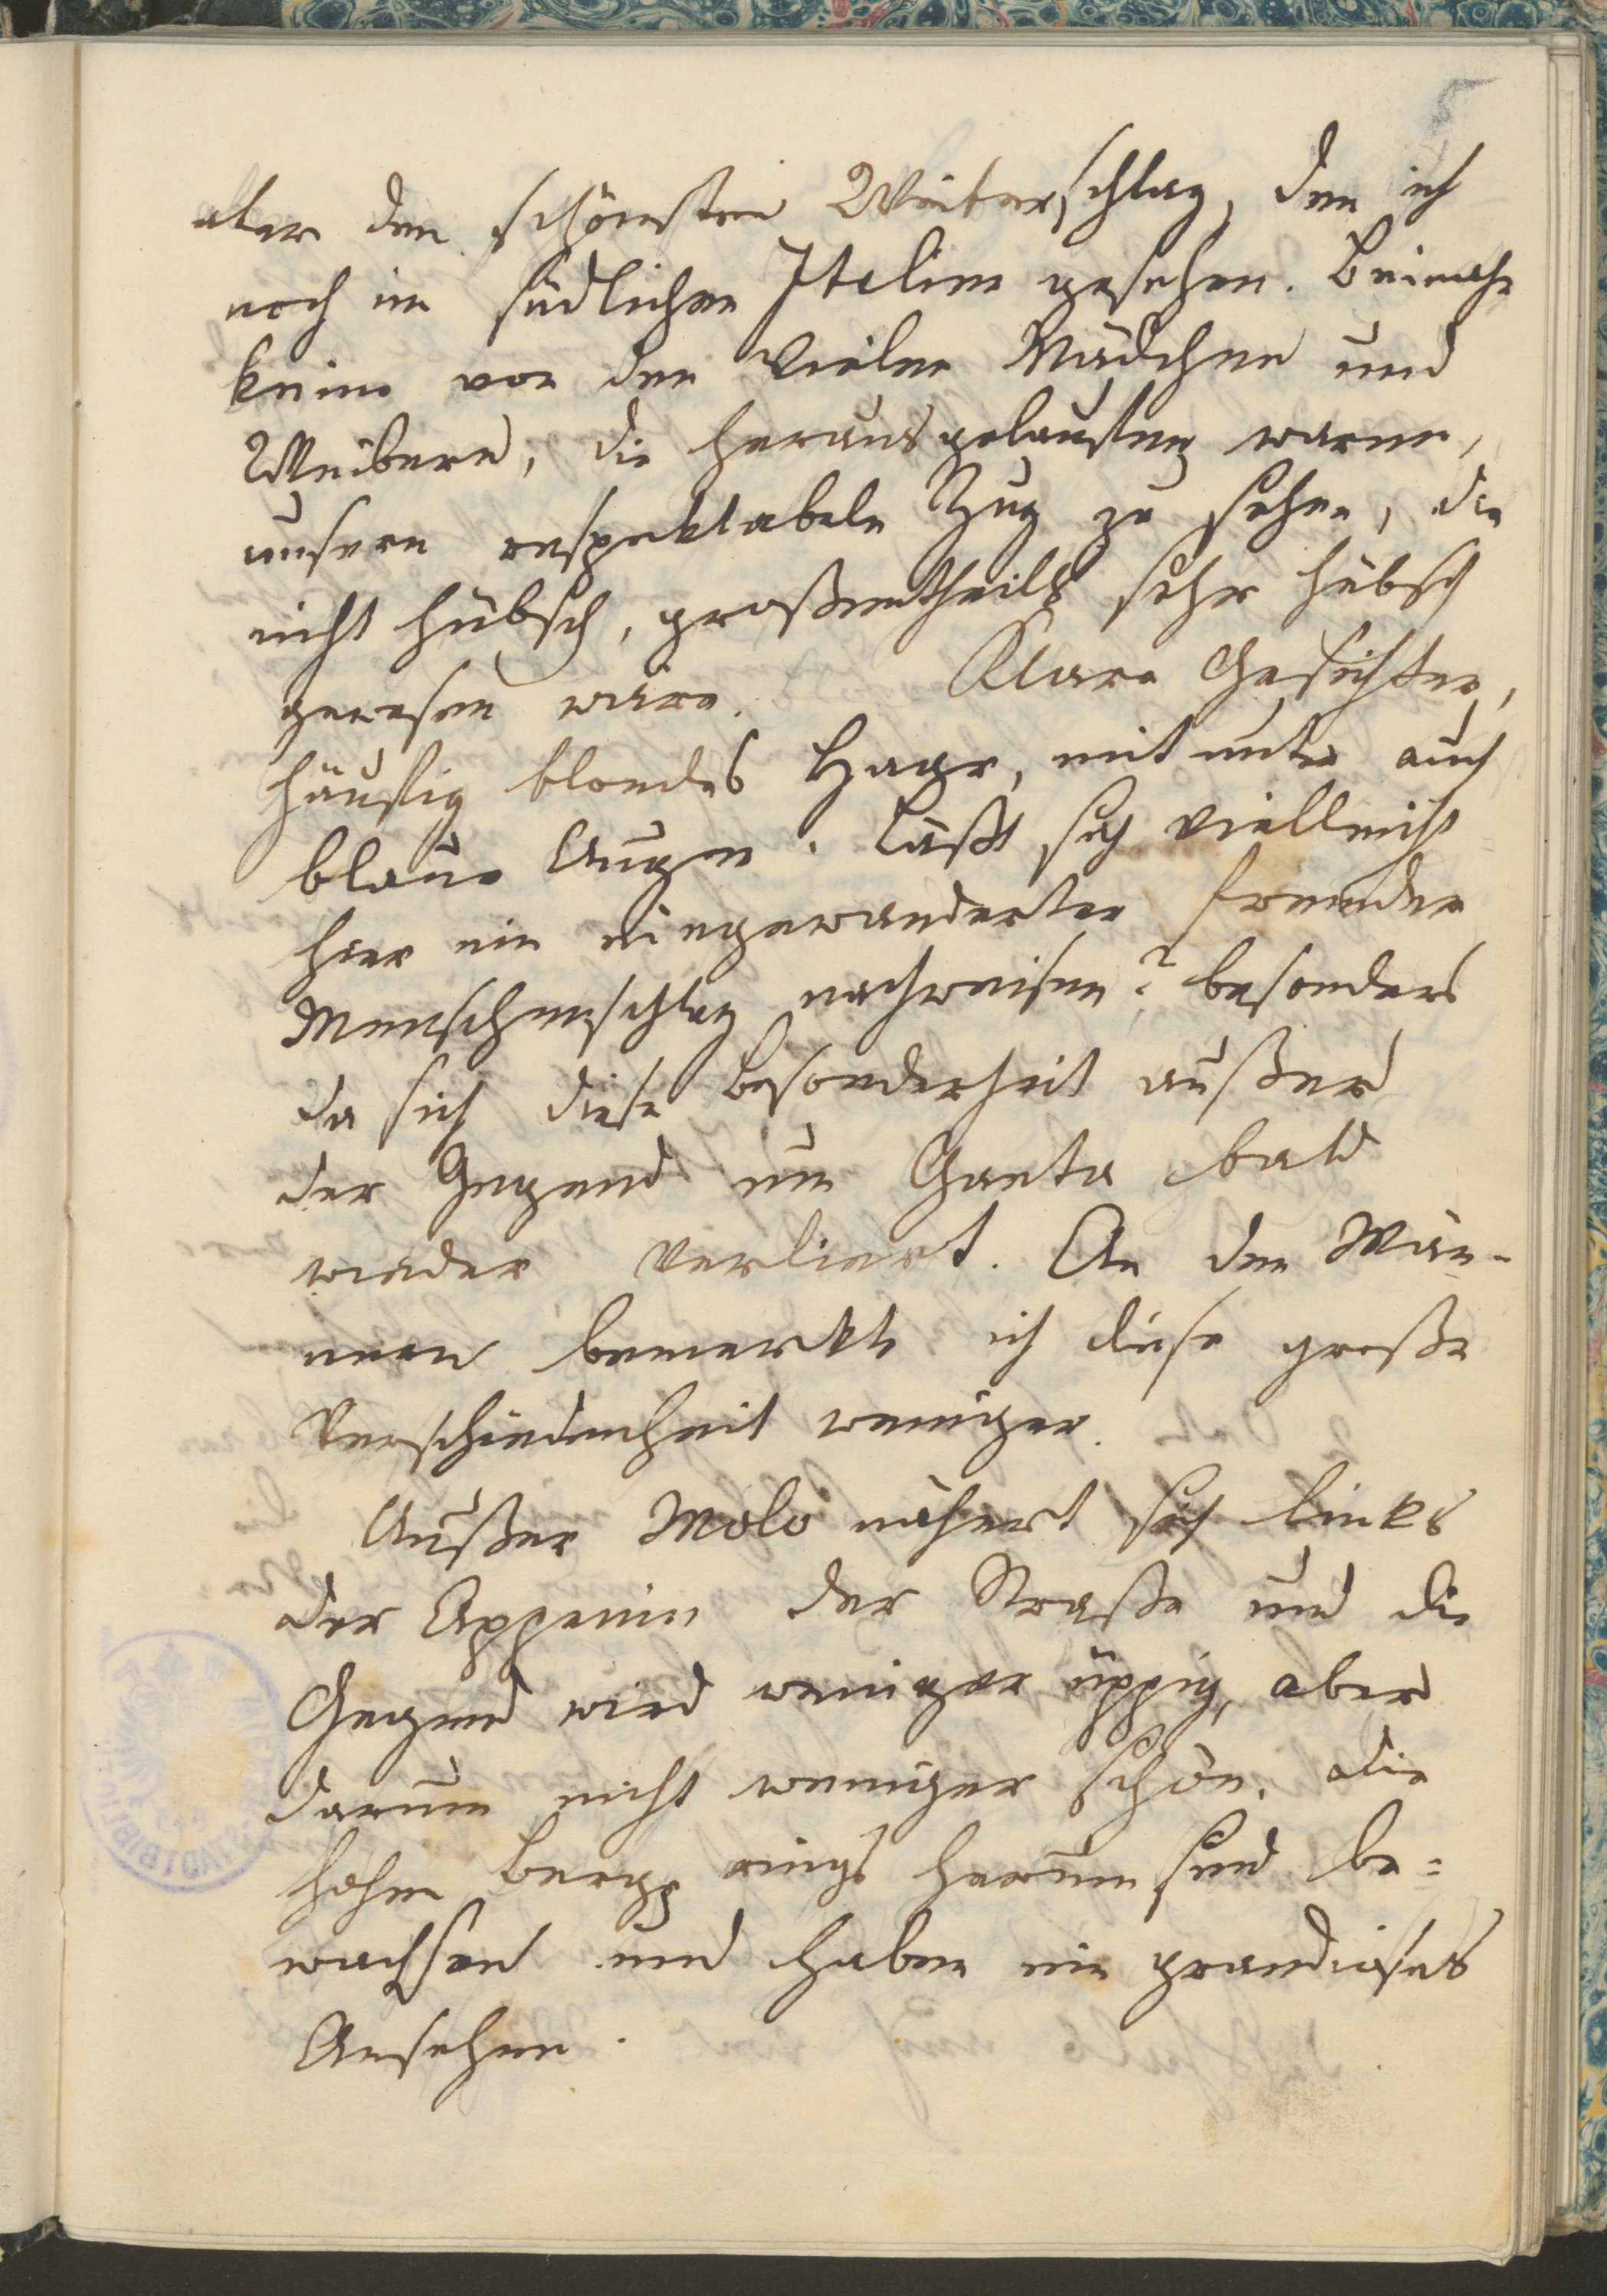 5
aber den schönsten Weiberschlag, den ich
noch im südlichen Italien gesehen. Beinahe
keine von den vielen Mädchen und
Weibern, die herausgelaufen waren,
unsern respektabeln Zug zu sehen, die
nicht hübsch, großentheils sehr hübsch
gewesen wäre. Klare Gesichter,
häufig blondes Haar, mitunter auch
blaue Augen. Läßt sich vielleicht
hier ein eingewanderter fremder
Menschenschlag nachweisen? besonders
da sich diese Besonderheit außer
der Gegend um Gaeta bald
wieder verliert. An den Män-
nern bemerkte ich diese große
Verschiedenheit weniger.
Außer Molo nähert sich links
der Appenin der Straße und die
Gegend wird weniger üppig, aber
darum nicht weniger schön. Die
hohen Berge rings herum sind be=
wachsen und haben ein grandioses
Ansehen.